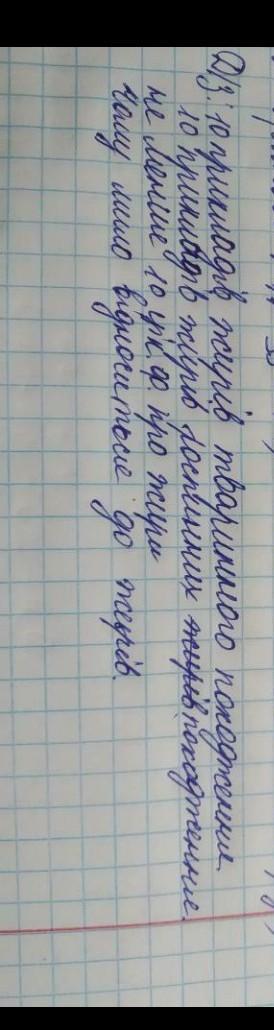 Д/З: 10 прикладів жирів тваринного походження.
10 прикладів жирів рослинних жирів походження.
не менше 10 цік. ф про жири
чому мило відноситься до жирів.